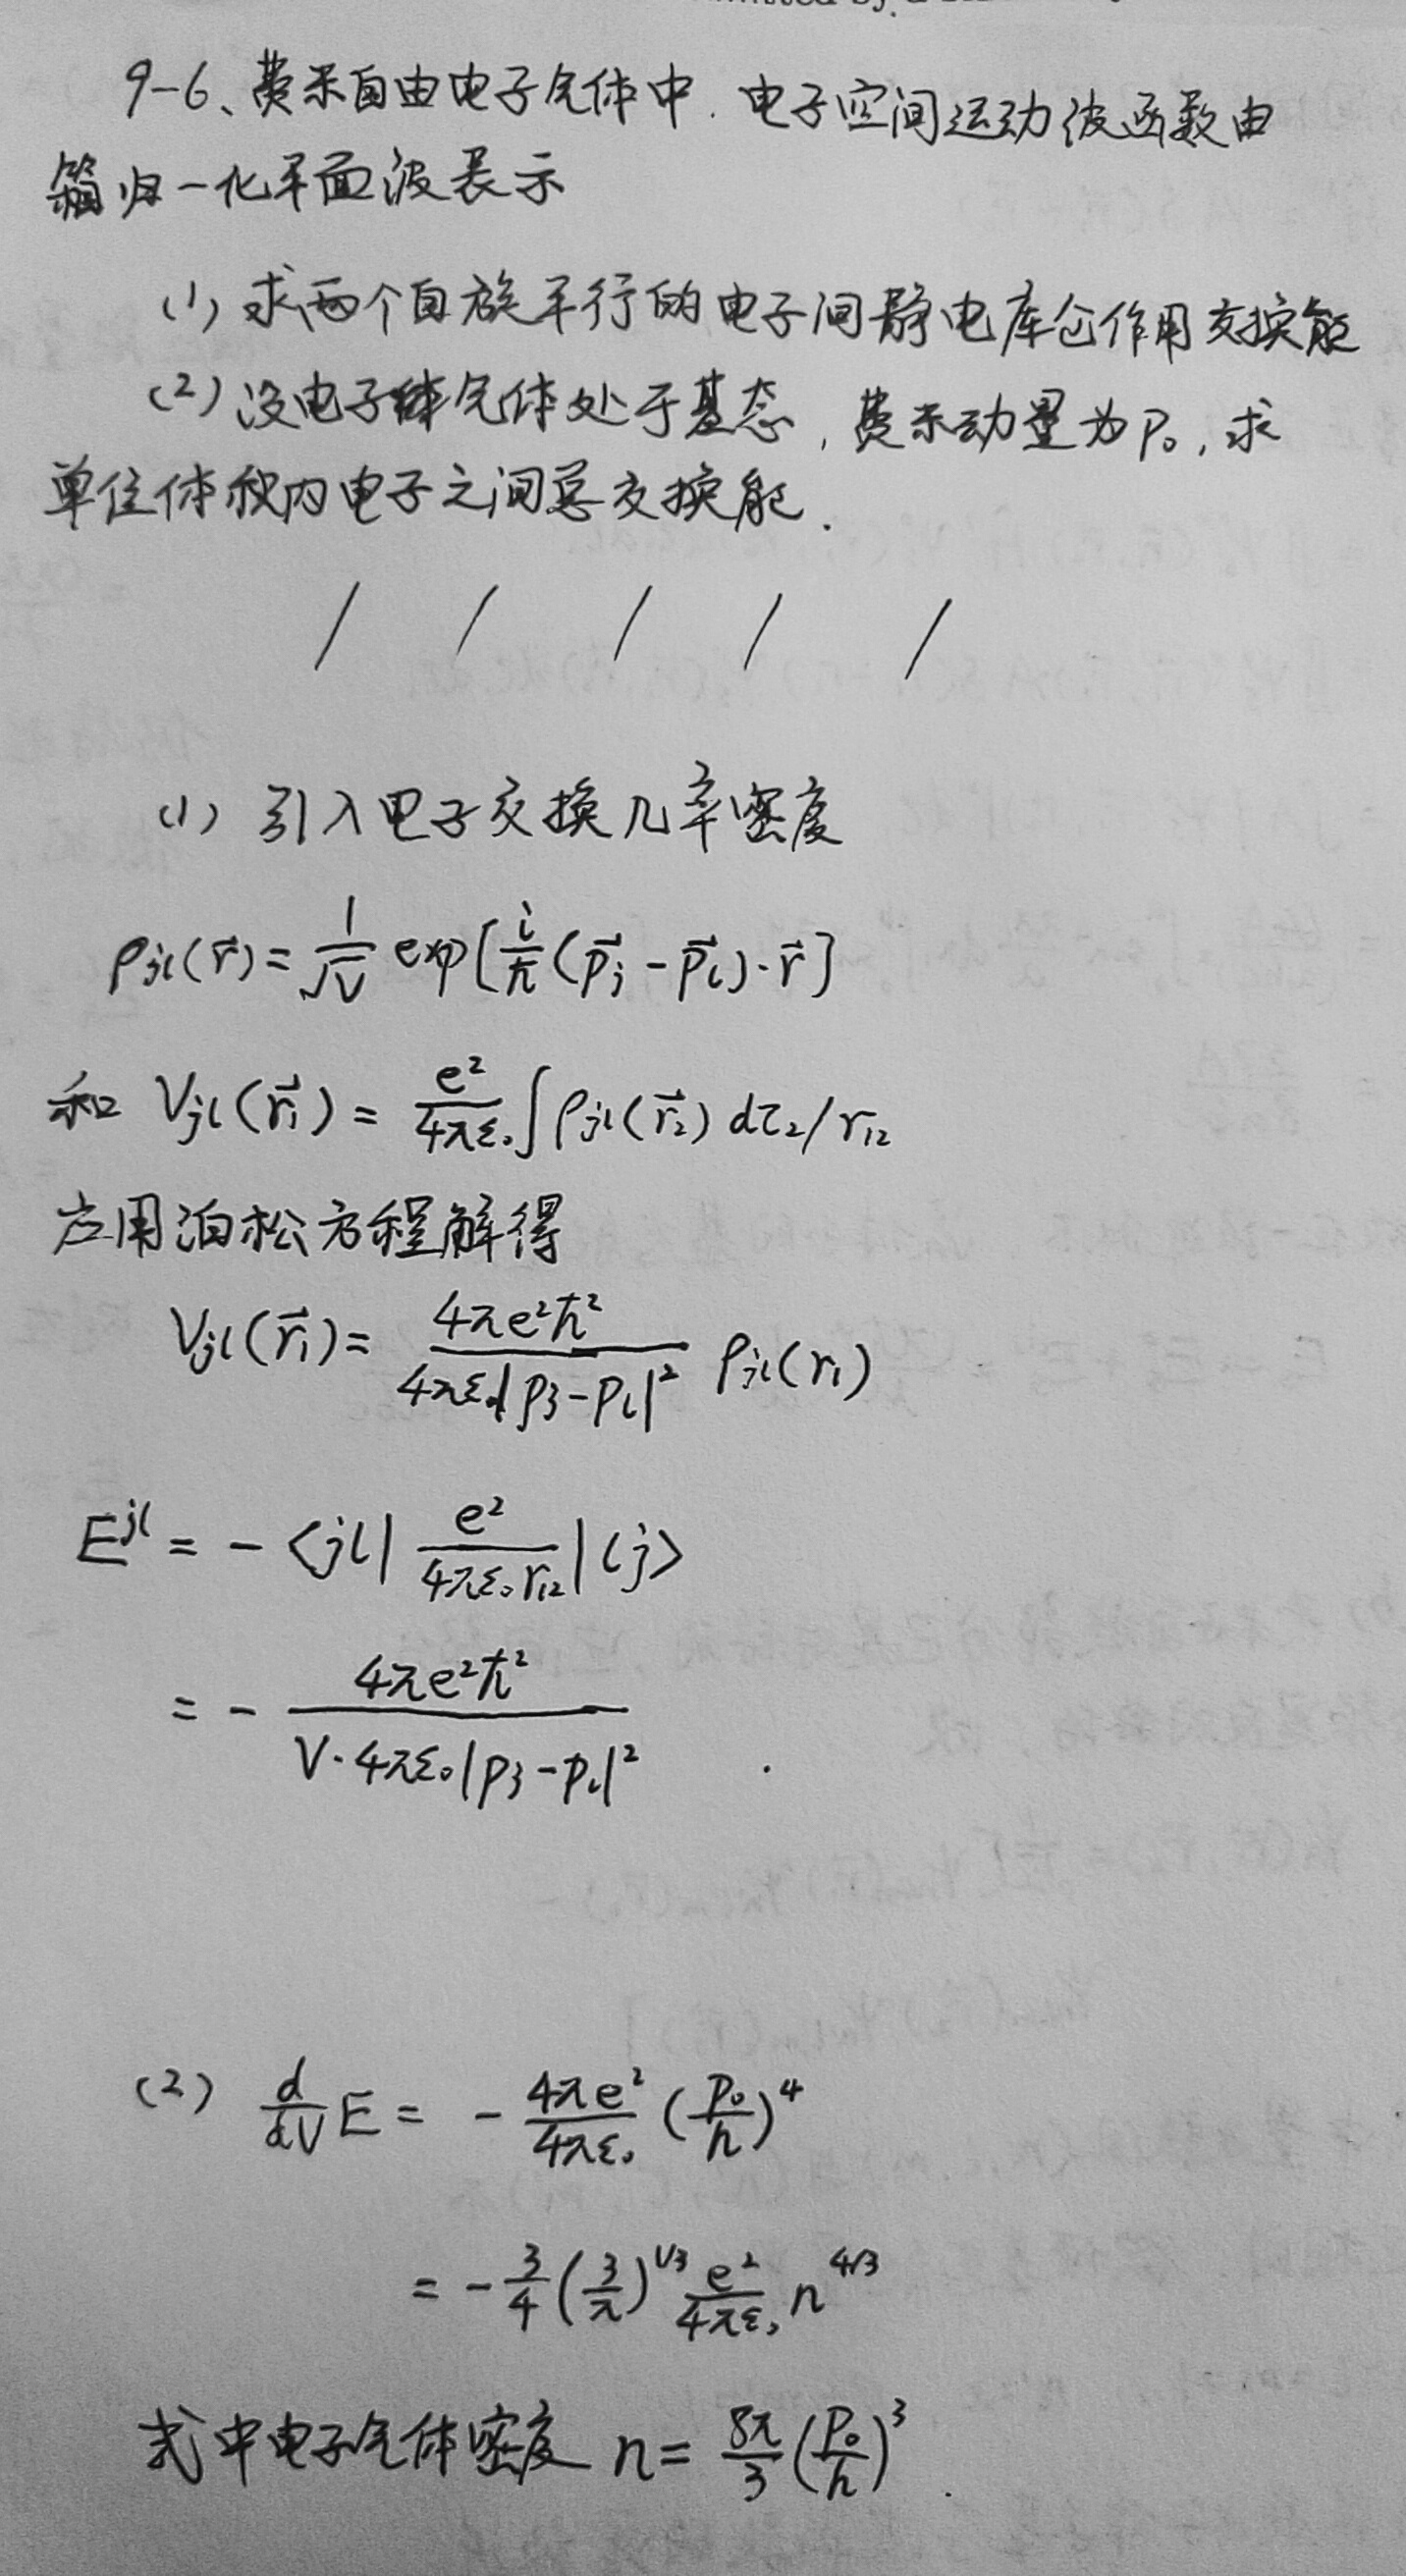 9-6、费米自由电子气体中.电子空间运动波函数由
箱归一化平面波表示
(1) 求两个自旋平行的电子间静电库仑作用交换能
(2) 设电子气体处于基态,费米动量为P₀,求
单位体积内电子之间总交换能.
/ / / / /
(1) 引入电子交换几率密度
ρjl(r⃗)=1/√V exp[i/ħ(p⃗j-p⃗l)·r⃗]
和 Vjl(r⃗₁)=e²/4πε₀∫ρjl(r⃗₂)dτ₂/r₁₂
应用泊松方程解得
Vjl(r⃗₁)=4πe²ħ²/4πε₀|pj-pl|² ρjl(r₁)
E^jl=-<jl|e²/4πε₀r₁₂|lj>
=-4πe²ħ²/V·4πε₀|pj-pl|²
(2) d/dV E=-4πe²/4πε₀(P₀/h)⁴
=-3/4(3/π)^1/3 e²/4πε₀ n^4/3
式中电子气体密度 n=8π/3(P₀/h)³.